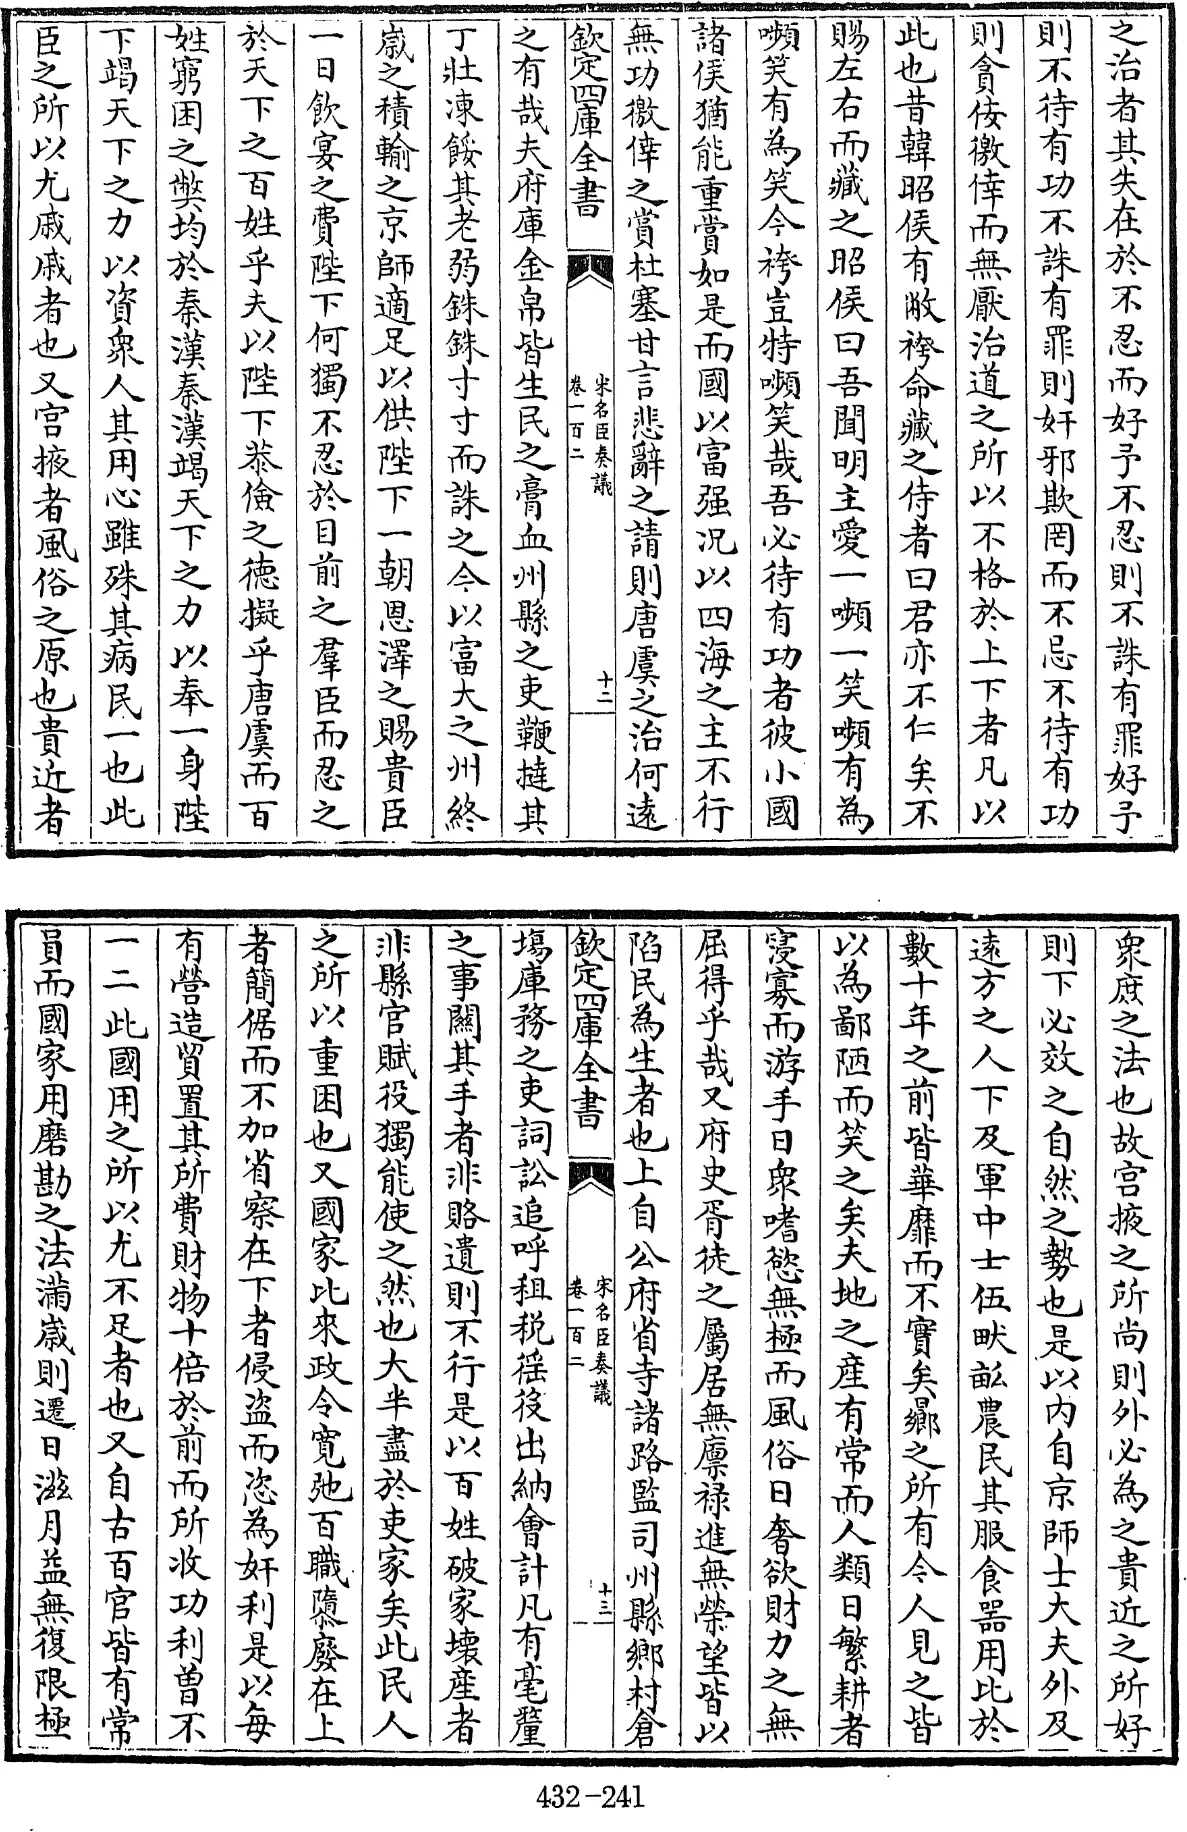 之治者其失在於不忍而好予不忍則不誅有罪好予
則不待有功不誅有罪則奸邪欺罔而不忌不待有功
則貪佞徼倖而無厭治道之所以不格於上下者凡以
此也昔韓昭侯有敝袴命藏之侍者曰君亦不仁矣不
賜左右而藏之昭侯曰吾聞明主愛一嚬一笑嚬有為
嚬笑有為笑今袴豈特嚬笑哉吾必待有功者彼小國
諸侯猶能重賞如是而國以富强况以四海之主不行
無功徼倖之賞杜塞甘言悲辭之請則唐虞之治何遠
欽定四庫全書
宋名臣奏議
卷一百二
十二
之有哉夫府庫金帛皆生民之膏血州縣之吏鞭撻其
丁壯凍餒其老弱銖銖寸寸而誅之今以富大之州終
嵗之積輸之京師適足以供陛下一朝恩澤之賜貴臣
一日飲宴之費陛下何獨不忍於目前之羣臣而忍之
於天下之百姓乎夫以陛下恭儉之德擬乎唐虞而百
姓窮困之弊均於秦漢秦漢竭天下之力以奉一身陛
下竭天下之力以資衆人其用心雖殊其病民一也此
臣之所以尤戚戚者也又宫掖者風俗之原也貴近者
衆庶之法也故宫掖之所尚則外必為之貴近之所好
則下必效之自然之勢也是以内自京師士大夫外及
逺方之人下及軍中士伍畎畝農民其服食器用比於
數十年之前皆華靡而不實矣嚮之所有今人見之皆
以為鄙陋而笑之矣夫地之産有常而人類日繁耕者
寖寡而游手日衆嗜慾無極而風俗日奢欲財力之無
屈得乎哉又府史胥徒之屬居無廪禄進無榮望皆以
䧟民為生者也上自公府省寺諸路監司州縣鄉村倉
欽定四庫全書
宋名臣奏議
卷一百二
十三
塲庫務之吏詞訟追呼租税徭役出納會計凡有毫釐
之事關其手者非賂遺則不行是以百姓破家壊産者
非縣官賦役獨能使之然也大半盡於吏家矣此民人
之所以重困也又國家比來政令寛弛百職隳廢在上
者簡倨而不加省察在下者侵盗而恣為奸利是以每
有營造貿置其所費財物十倍於前而所收功利曽不
一二此國用之所以尤不足者也又自古百官皆有常
員而國家用磨勘之法滿嵗則遷日滋月益無復限極
432-241